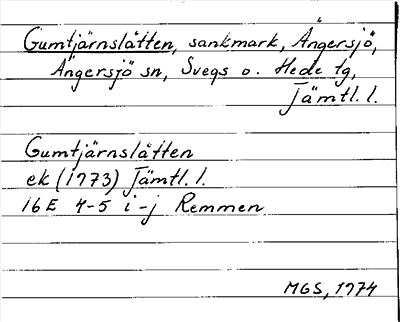 Gumtjärnslåtten, sankmark, Ängersjö,
Ängersjö sn, Svegs o. Hede tg,
Jämtl. l.
Gumtjärnslåtten
ek (1973) Jämtl. l.
16E 4-5 i-j Remmen
MGS, 1974